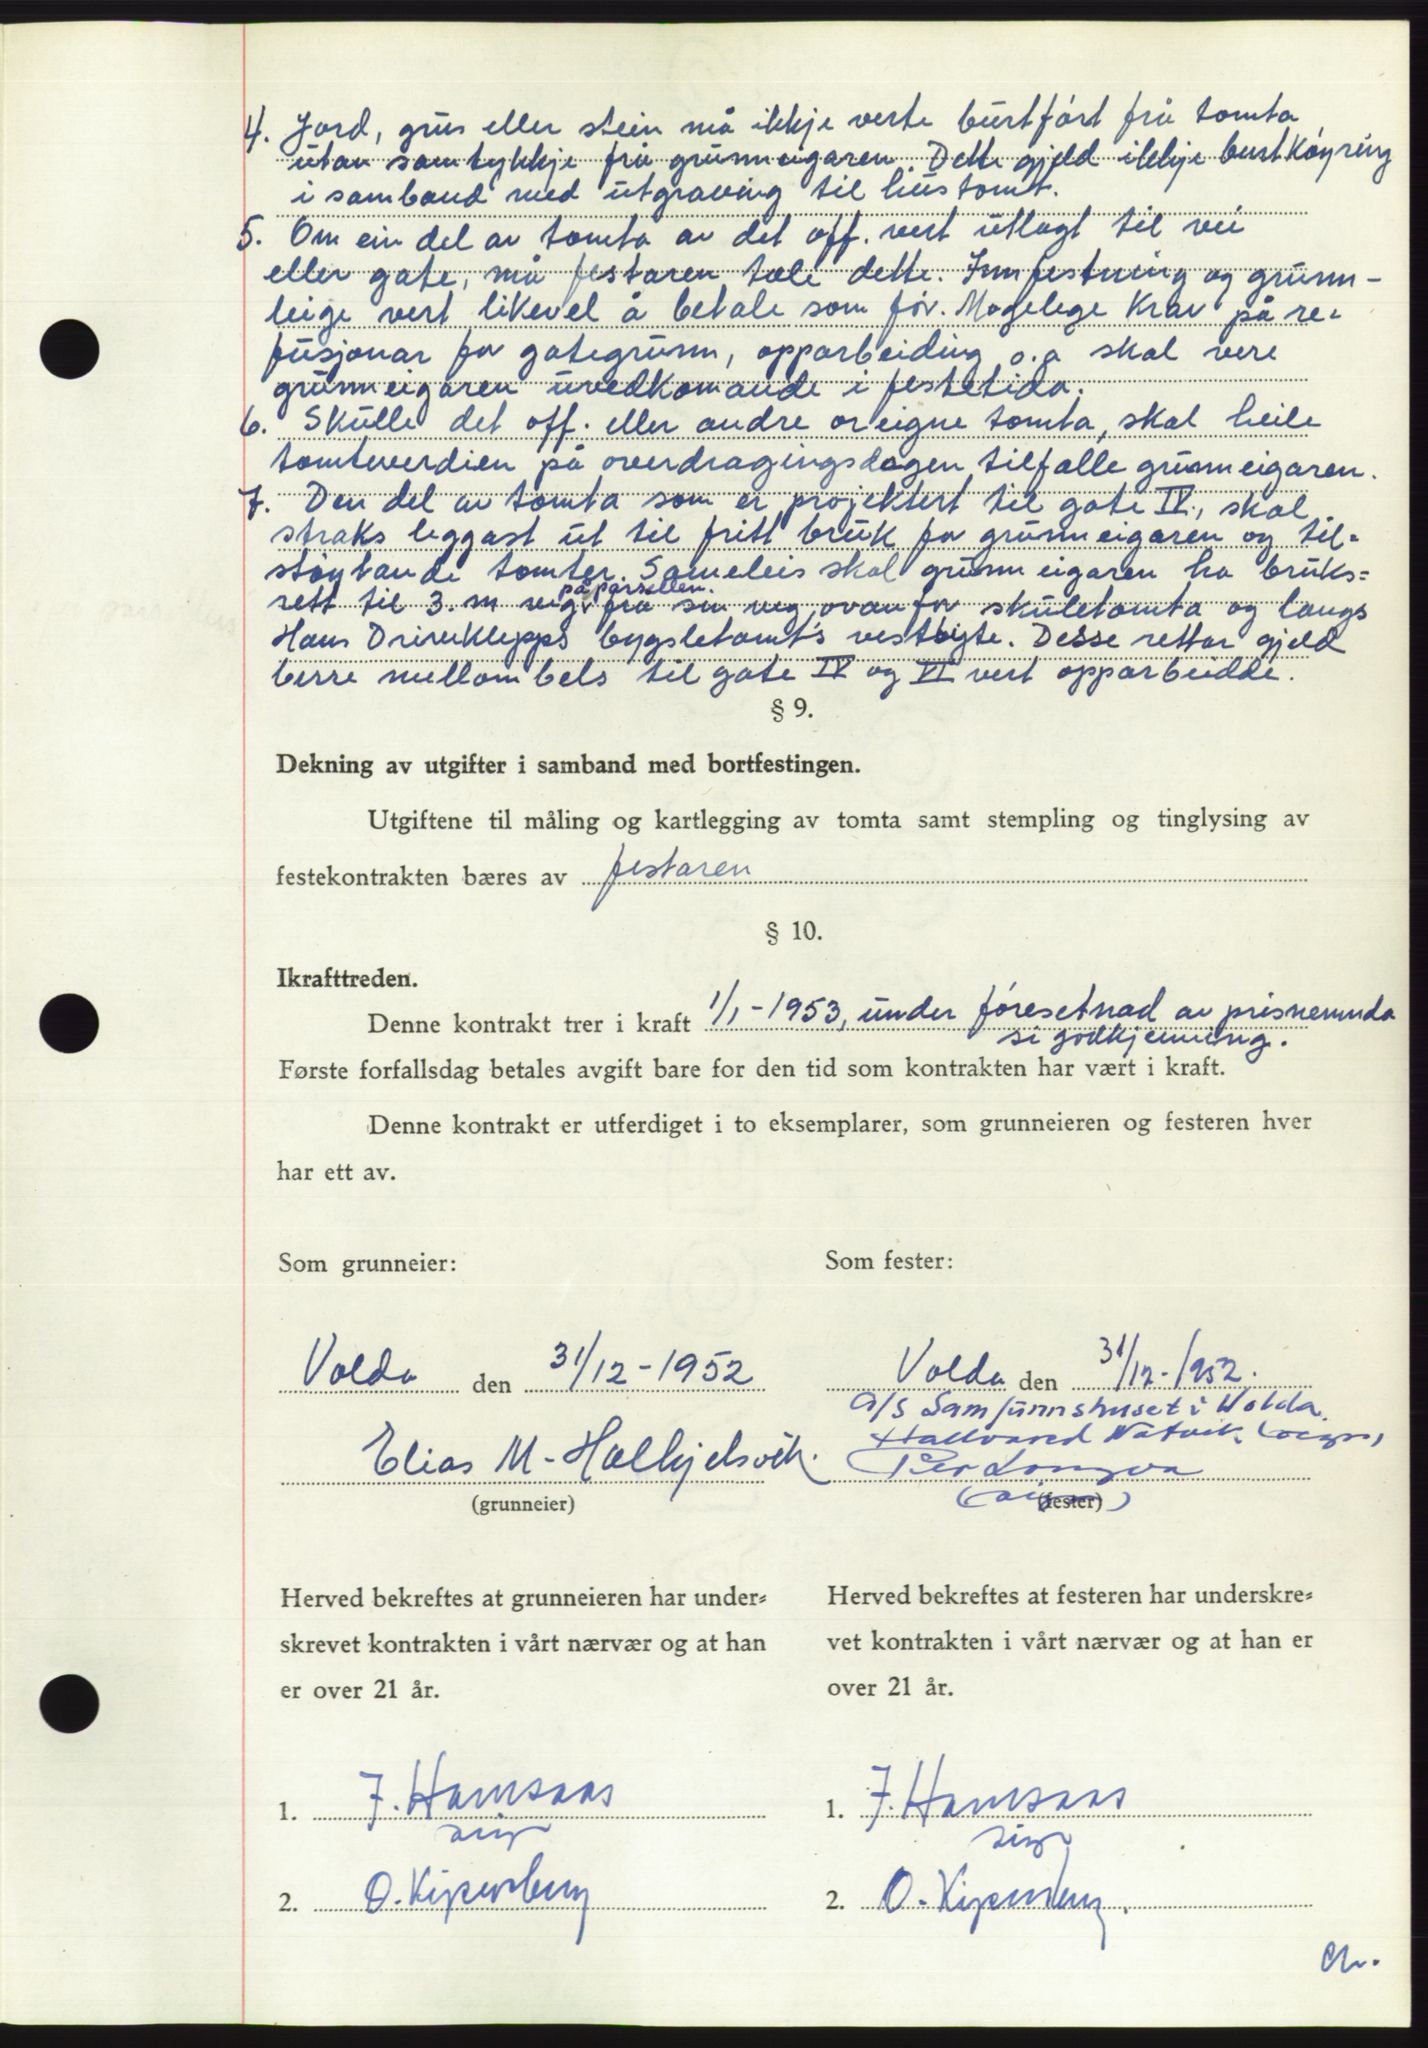 4. Jord, grus eller stein må ikkje verte burtført frå tomta
utan samtykkje frå grunneigaren. Dette gjeld ikkje burtkøyring
i samband med utgraving til hustomt.
5. Om ein del av tomta av det off. vert utlagt til vei
eller gate, må festaren tole dette. Innfestning og grunn-
leige vert likevel å betale som før. Mogelege krav på re-
fusjonar for gategrunn, opparbeiding o.a skal vere
grunneigaren uvedkomande i festetida.
6. Skulle det off. eller andre oreigne tomta, skal heile
tomteverdien på overdragingsdagen tilfalle grunneigaren.
7. Den del av tomta som er projektert til gate IV, skal
straks leggast ut til fritt bruk for grunneigaren og til-
støytande tomter. Sameleis skal grunneigaren ha bruks-
på parsellen.
rett til 3. m veg frå sin veg ovanfor skuletomta og langs
Hans Driveklepps bygsletomt's vestbyte. Desse rettar gjeld
berre mellombels til gate IV og VI vert opparbeidde.
§ 9.
Dekning av utgifter i samband med bortfestingen.
Utgiftene til måling og kartlegging av tomta samt stempling og tinglysing av
festekontrakten bæres av festaren
§ 10.
Ikrafttreden.
Denne kontrakt trer i kraft 1/1-1953, under føresetnad av prisnemnda
si godkjenning.
Første forfallsdag betales avgift bare for den tid som kontrakten har vært i kraft.
Denne kontrakt er utferdiget i to eksemplarer, som grunneieren og festeren hver
har ett av.
Som grunneier: Som fester:
Volda den 31/12-1952 Volda den 31/12-1952.
A/S Samfunnshuset i Volda.
Hallvard Natvik (sign)
Elias M. Halkjelsvik. Per Longva
(grunneier) (sign) (fester)
Herved bekreftes at grunneieren har under- Herved bekreftes at festeren har underskre-
skrevet kontrakten i vårt nærvær og at han vet kontrakten i vårt nærvær og at han er
er over 21 år. over 21 år.
1. J. Hamsaas 1. J. Hamsaas
sign sign
2. O. Kipersberg 2. O. Kipersberg.